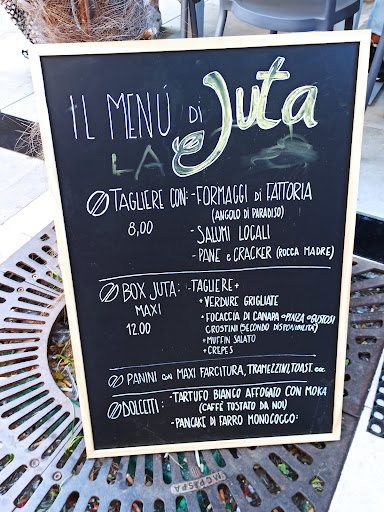 IL MENÚ di Juta
LA
TAGLIERE CON: - FORMAGGI di FATTORIA
(ANGOLO DI PARADISO)
8,00
- SALUMI LOCALI
- PANE e CRACKER (ROCCA MADRE)
BOX JUTA: - TAGLIERE +
MAXI + VERDURE GRIGLIATE
12.00 + FOCACCIA DI CANAPA O PINZA O GUSTOSI
CROSTINI (SECONDO DISPONIBILITÀ)
+ MUFFIN SALATO
+ CREPES
PANINI con MAXI FARCITURA, TRAMEZZINI, TOAST. ecc.
DOLCETTI: - TARTUFO BIANCO AFFOGATO CON MOKA
(CAFFÈ TOSTATO DA NOI)
- PANCAKE DI FARRO MONOCOCCO